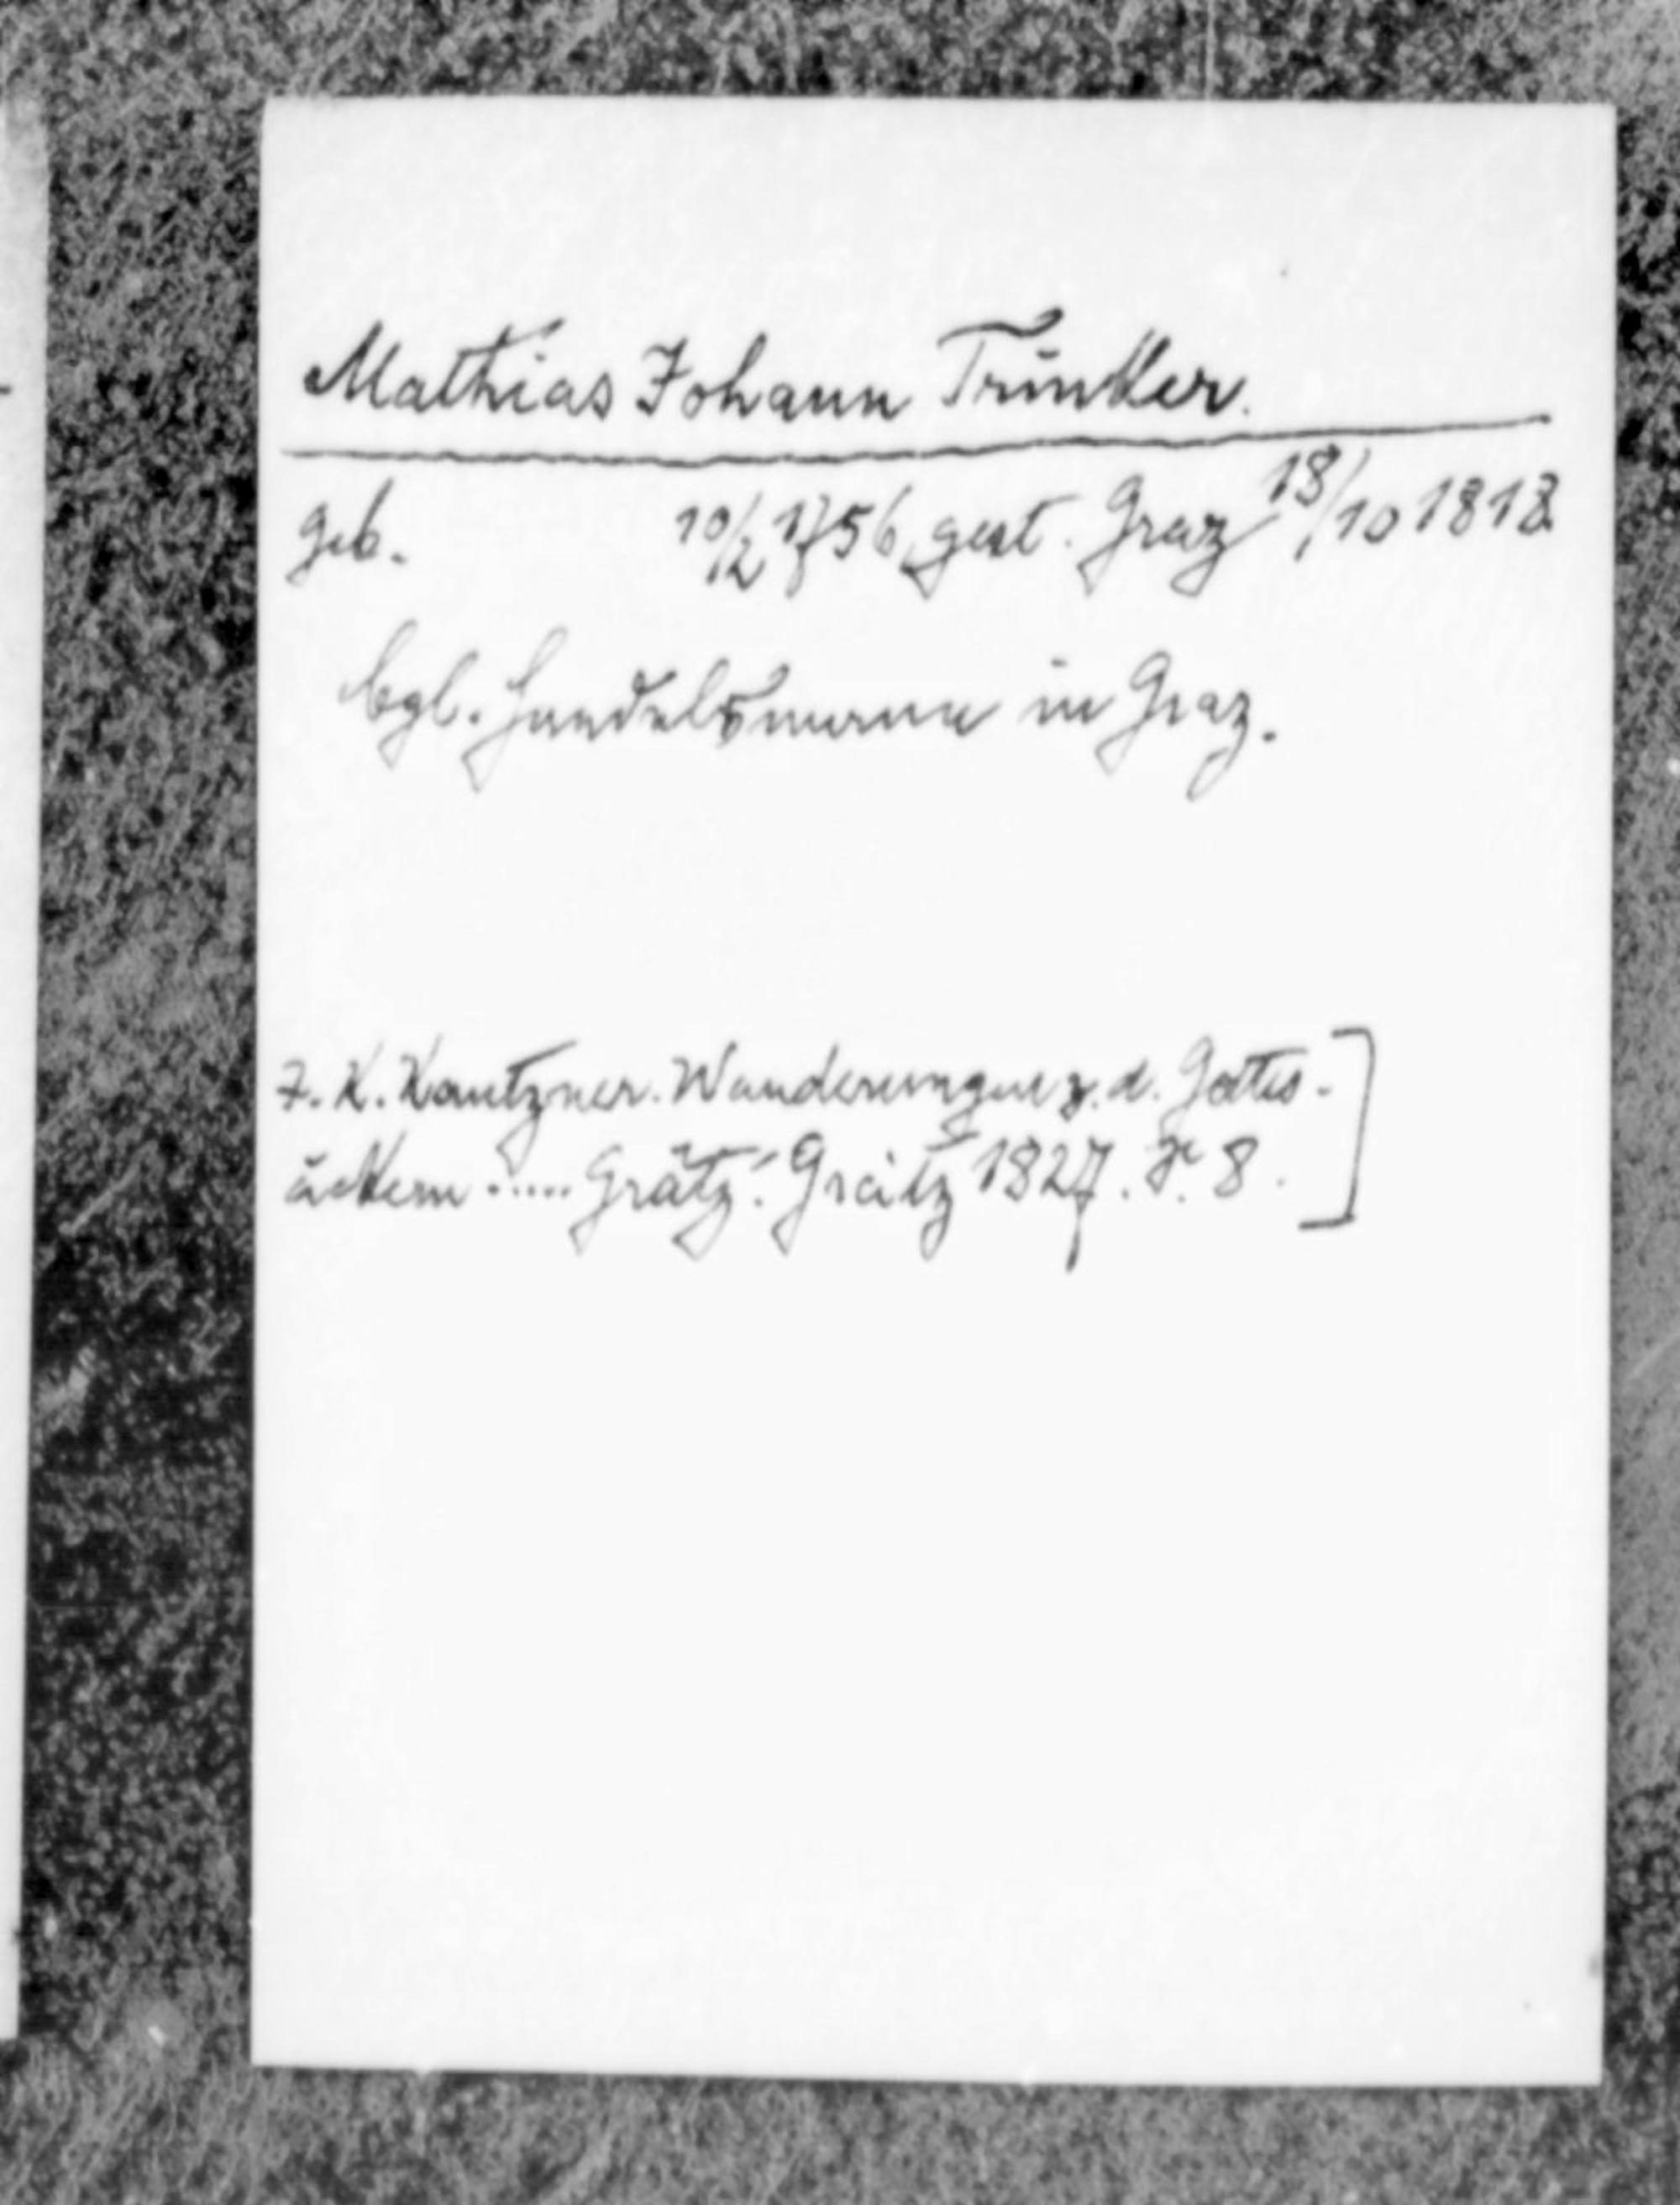 Mathias Johann Trinker.
geb. 10/2 1756, gest. Graz 18/10 1818
bgl. Handelsmann in Graz.
J. K. Kautzner. Wanderungen z. d. Gottes-
äckern ..... Grätz. Grätz 1827. S. 8. ]